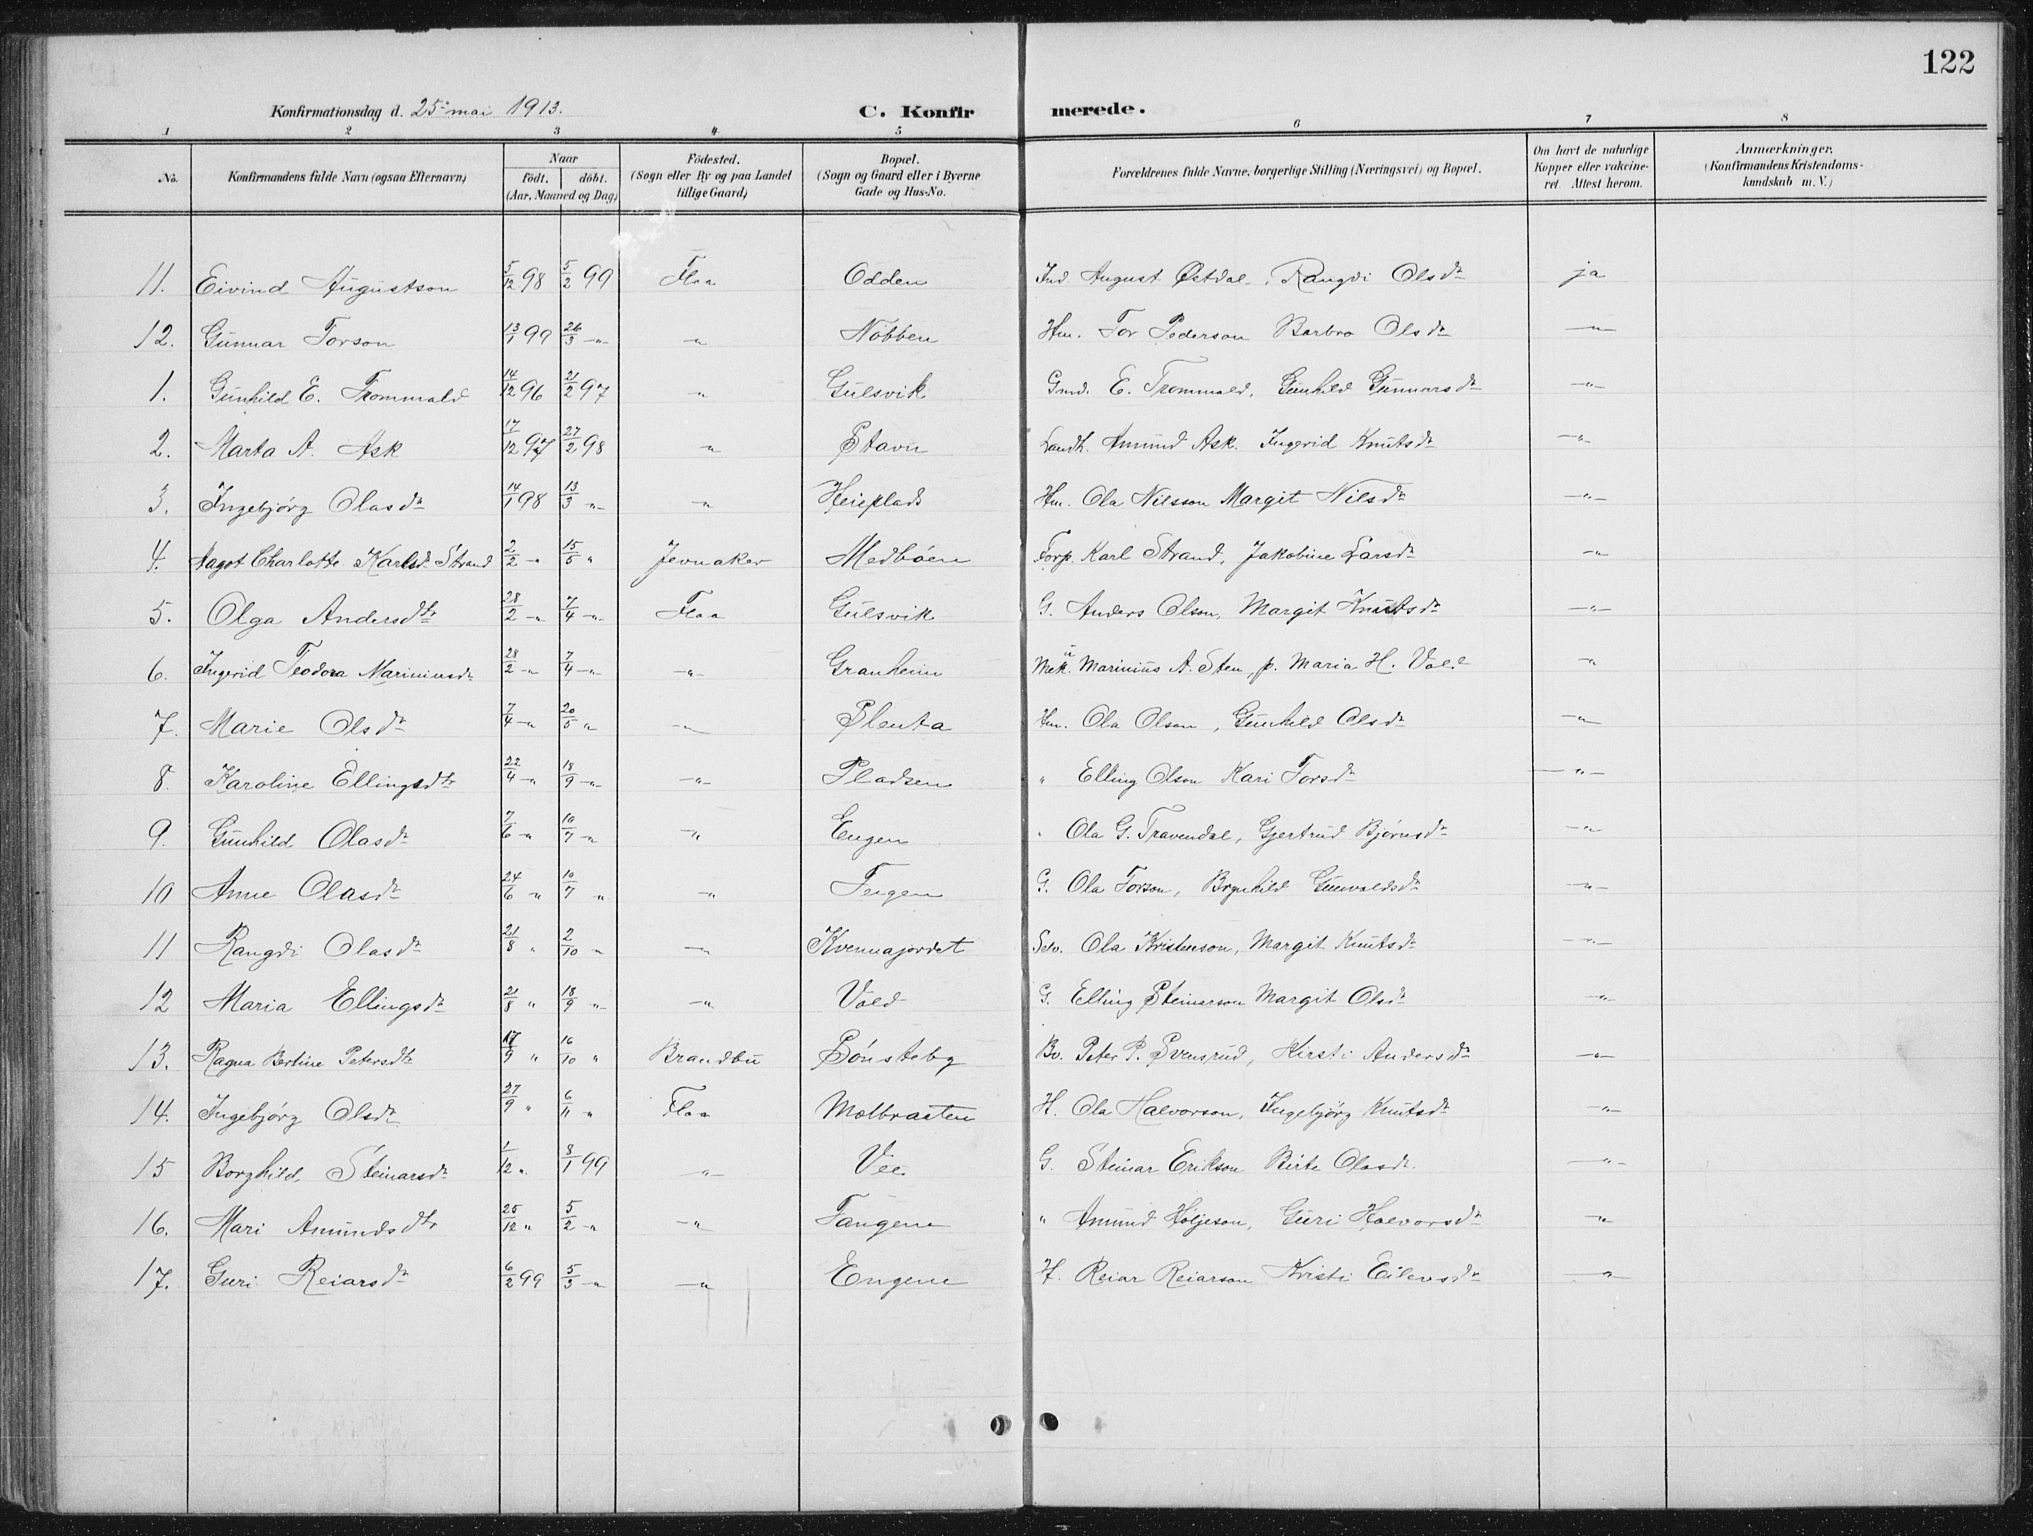 122
Konfirmationsdag d. 25. mai 1913. C. Konfirmerede.
1 2 3 4 5 6 7 8
No. Konfirmandens fulde Navn (ogsaa Efternavn) Naar født. døbt. (Aar, Maaned og Dag) Fødested. (Sogn eller By og paa Landet tillige Gaard) Bopæl. (Sogn og Gaard eller i Byerne Gade og Hus-No. Forældrenes fulde Navne, borgerlige Stilling (Næringsvei) og Bopæl. Om havt de naturlige Kopper eller vakcineret. Attest herom. Anmærkninger. (Konfirmandens Kristendomskundskab m. V.)
11. Eivind Augustson 5/12 98 5/2 99 Flaa Odden Ind August Østdal, Rangdi Olsdr ja
12. Gunnar Torson 13/1 99 26/3 -"- -"- Nobben Hm. Tor Pederson Barbro Olsdr -"-
1. Gunhild E. Trommald 14/12 96 21/2 97 -"- Gulsvik Grmd. E. Trommald, Gunhild Gunnarsdr -"-
2. Marta A. Ask 17/12 97 27/2 98 -"- Stavn Landh. Amund Ask. Ingerid Knutsdr -"-
3. Ingebjørg Olasdr 14/1 98 13/3 -"- -"- Heieplads Hm. Ola Nilsson Margit Nilsdr -"-
4. Aagot Charlotte Karlsd. Strand 2/2 -"- 15/5 " Jevnaker Medbøen Forp. Karl Strand, Jakobine Larsdr -"-
5. Olga Andersdtr 28/2 -"- 7/4 -"- Flaa Gulsvik G. Anders Olson, Margit Knutsdr -"-
6. Ingerid Teodora Mariniusdr 28/2 -"- 7/4 -"- -"- Granheim Mek. Marinius A. Sten, p. Maria H. Vold -"-
7. Marie Olsdr 7/4 -"- 20/5 " -"- Slenta Hm. Ola Olson, Gunhild Olsdr -"-
8. Karoline Ellingsdtr 22/4 -"- 18/9 -"- -"- Pladsen " Elling Olson Kari Torsdr -"-
9. Gunhild Olasdr 7/6 -"- 10/7 -"- -"- Engen " Ola G. Travendal, Gjertrud Bjørnsdr -"-
10 Anne Olasdr 24/6 " 10/7 " -"- Teigen G. Ola Torson, Brynhild Gunvaldsdr -"-
11 Rangdi Olasdr 21/8 " 2/10 -"- -"- Kvennajordet Selv. Ola Kristenson, Margit Knutsdr -"-
12 Maria Ellingsdr 21/8 " 18/9 -"- -"- Vold G. Elling Steinarson Margit Olsdr -"-
13. Ragna Bertine Petersdtr 17/9 " 16/10 " Brandbu Sønsteby Bv. Peter P. Svensrud, Kirsti Andersdr -"-
14. Ingebjørg Olsdr 27/9 " 6/11 " Flaa Molbraaten H. Ola Halvorson, Ingebjørg Knutsdr -"-
15 Borghild Steinarsdr 1/12 " 8/1 99 -"- Vee G. Steinar Erikson Birte Olasdr. -"-
16. Mari Amundsdtr 25/12 " 5/2 -"- -"- Tangene " Amund Høljeson, Guri Halvorsdr -"-
17. Guri Reiarsdr 6/2 99 5/3 -"- -"- Engene H. Reiar Reiarson Kristi Eilevsdr -"-